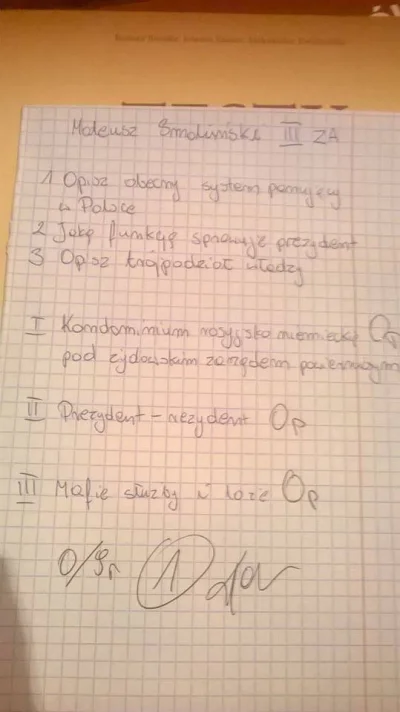 Mateusz Smoliński III ZA
1 Opisz obecny system panujący
w Polsce
2 Jaką funkcję sprawuje prezydent
3 Opisz trójpodział władzy
I Kondominium rosyjsko niemieckie 0p
pod żydowskim zarzędem powierniczym
II Prezydent - rezydent 0p
III Mafie służby i loże 0p
0/9p 1